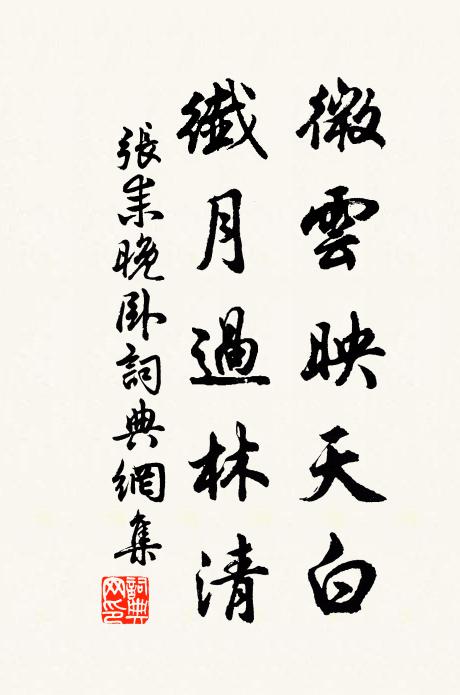 微雲映天白
纖月過林清
張耒晚卧詞典網集
詞典
网印